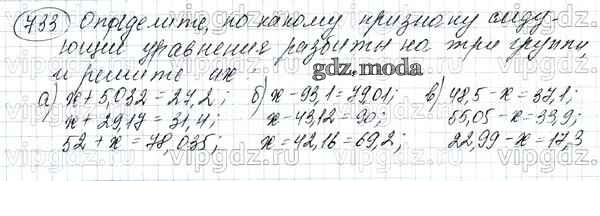 733 Определите, по какому признаку следу-
ющие уравнения разбиты на три группы,
и решите их:
gdz.moda
а) x + 5,032 = 27,2; б) x - 93,1 = 79,01; в) 48,5 - x = 37,1;
x + 29,17 = 31,4; x - 43,12 = 90; 55,05 - x = 33,9;
52 + x = 78,035; x = 42,16 = 69,2; 22,99 - x = 17,3
vipgdz.ru